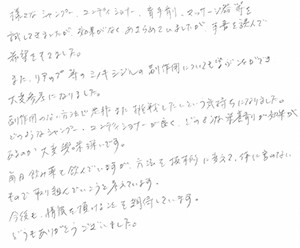 様々なシャンプー、コンディショナー、育毛剤、マッサージ器等を
試してきましたが、効果がなくあきらめていましたが、本書を読んで
希望をもてました。
また、リアップ等のミノキシジルの副作用についても学ぶことができ
大変参考になりました。
副作用のない方法で是非また挑戦したいという気持ちになりました。
どのようなシャンプー、コンディショナーが良く、どのような栄養剤が効果が
あるのか大変興味深いです。
毎日飲み薬を飲んでいますが、方法を抜本的に変えて、体に害のない
もので取り組んでいこうと考えています。
今後も、情報を頂けることを期待しています。
どうもありがとうございました。